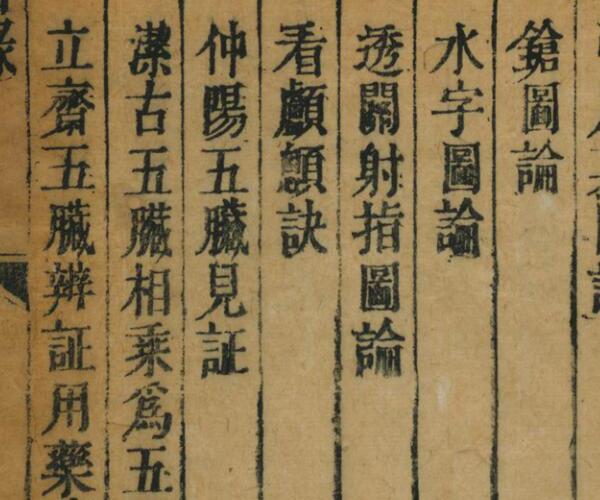 鎗圖論
水字圖論
透關射指圖論
看顱顖訣
仲陽五臟見証
潔古五臟相乘爲五
立齋五臟辨証用藥